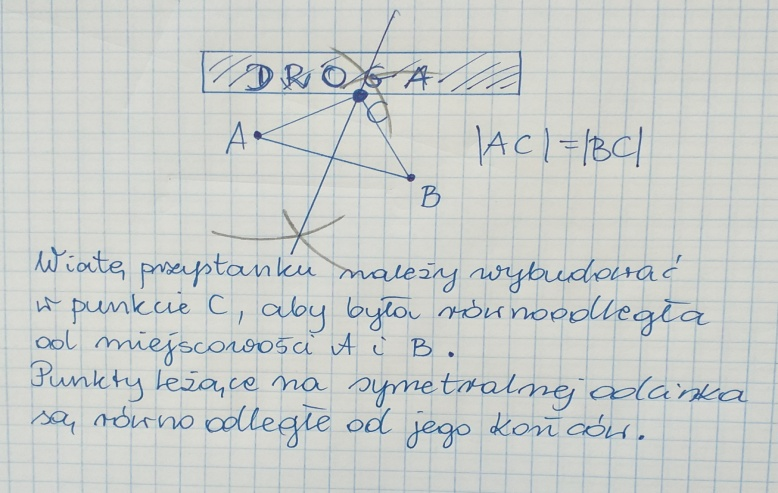 DROGA
C
A
|AC|=|BC|
B
Wiatę przystanku należy wybudować
w punkcie C, aby była równoodległa
od miejscowości A i B.
Punkty leżące na symetralnej odcinka
są równoodległe od jego końców.